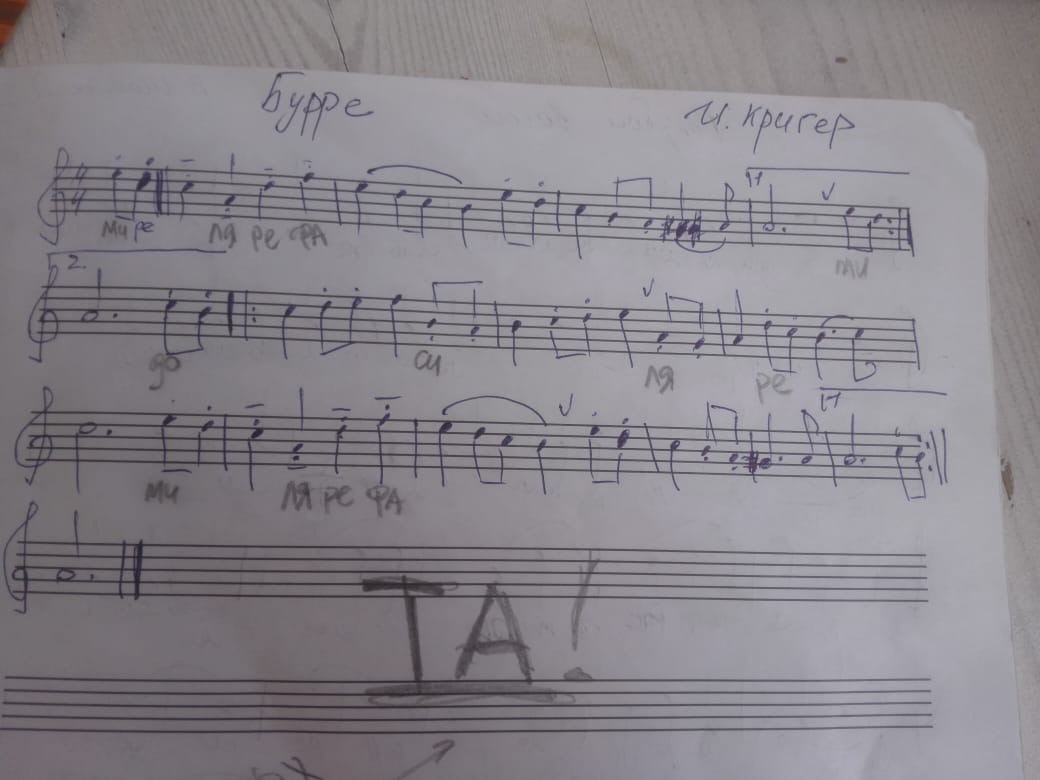 Бурре И. Кригер
4 4
ми ре ля ре фа ми
1
2.
до си ля ре
ми ля ре фа
1
ТА!